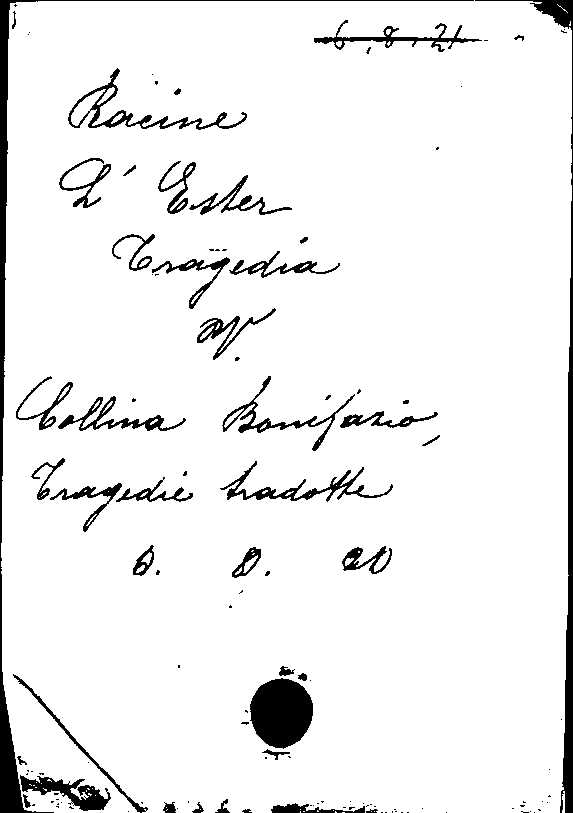 6.8.21
Racine
L' Ester
Tragedia
Collina Bonifazio,
Tragedie tradotte
6. 8. 20